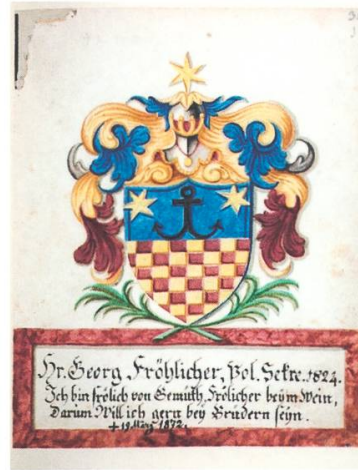 Hr. Georg Fröhlicher, Pol. Sekre. 1824.
Ich bin frölich von Gemüth, Frölicher beÿm Wein,
Darum Will ich gern beÿ Brüdern seÿn.
✝ 19 März 1872.